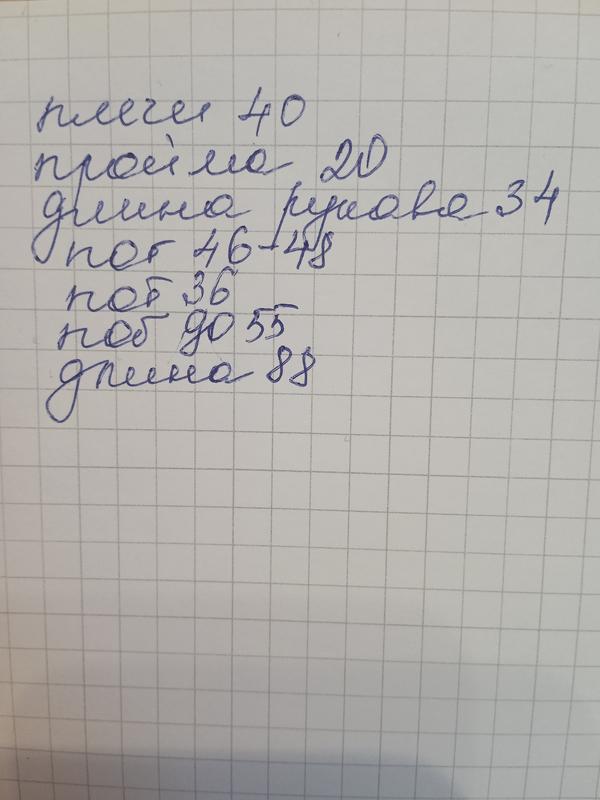 плечи 40
пройма 20
длина рукава 34
пог 46-48
пот 36
поб до 55
длина 88